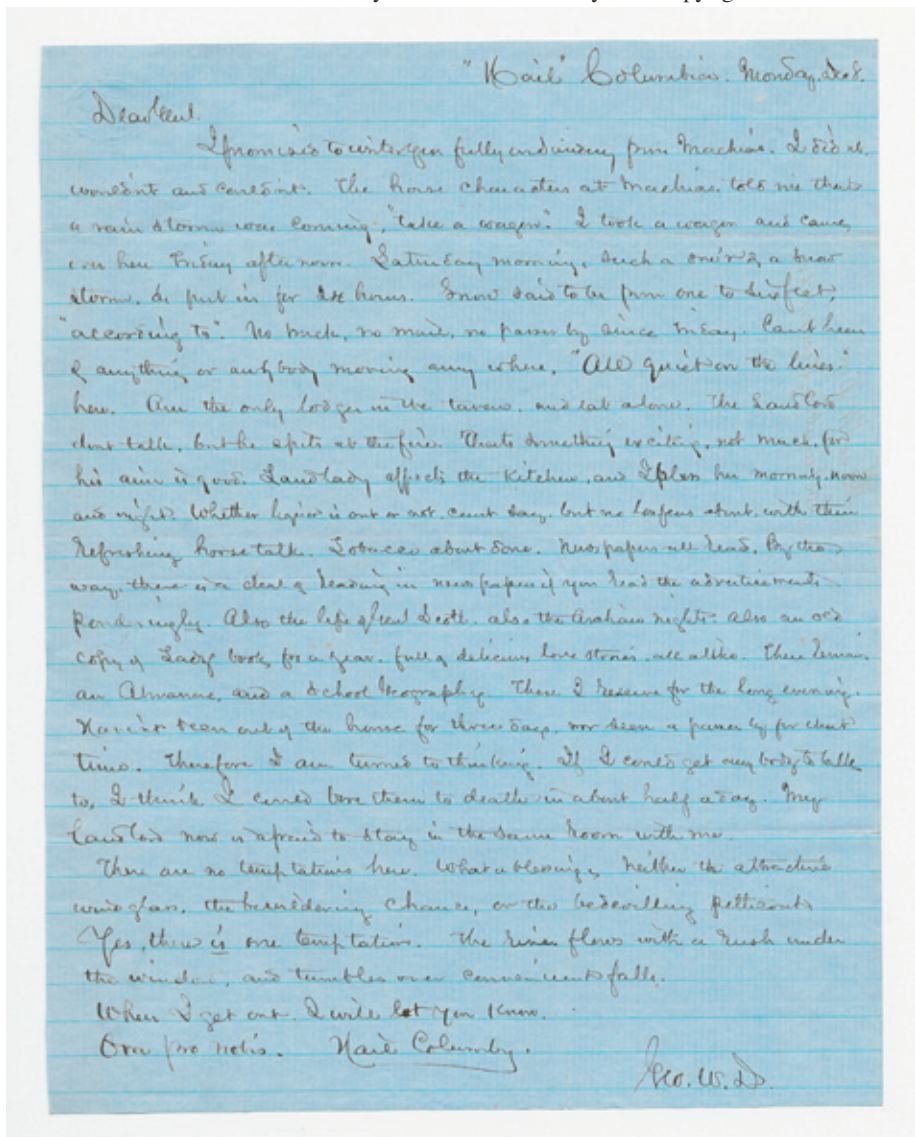 "Hail" Columbia. Monday, Dec 8.
Dear
I promised to write you fully and from Machias. I did
wouldn't and couldn't. The horse characters at Machias told me that
a rain storm was coming, "take a wagon". I took a wagon and came
over here Friday afternoon. Saturday morning, such a a snow
storm, & put in for hours. Snow said to be from one to six feet,
"according to". No track, no mail, no passer by since Friday. Can't hear
of anything or anybody moving any where. "All quiet on the lines."
here. Am the only lodger in the tavern, and eat alone. The Landlord
dont talk, but he spits at the fire. Thats something exciting, not much, for
his aim is good. Landlady affects the kitchen, and I her morning, noon
and night. Whether liquor is out or not, cant say, but no loafers about, with their
refreshing horse talk. Tobacco about done. Newspapers all read. By the
way, there is a deal of reading in newspapers if you read the advertisements
ponderingly. Also the life of Scott. also the Arabian nights: also an old
copy of Ladys book for a year, full of delicious love stories, all alike. There remain
an Almanac, and a School Geography. These I reserve for the long evening.
Haven't been out of the house for three days, nor seen a passer by for that
time. Therefore I am turned to thinking. If I could get any body to talk
to, I think I could bore them to death in about half a day. My
Landlord now is afraid to stay in the same room with me.
There are no temptations here. What a blessing, neither the attractive
wine glass, the bewildering chance, or the bedevilling petticoat
Yes, there is one temptation. The river flows with a rush under
the window, and tumbles over convenient falls.
When I get out I will let you know.
Ora pro nobis. Hail Columby.
Geo. W. D.